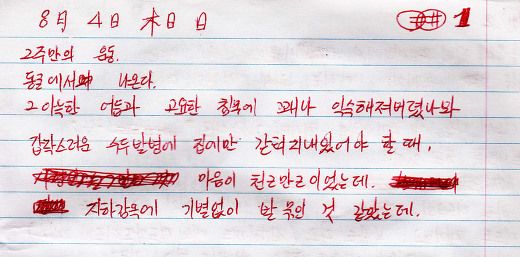 8月 4日 木日日 1
2주만의 운동.
동굴에서 나온다.
그 아늑한 어둠과 고요한 침묵에 꽤나 익숙해져버렸나봐
갑작스러운 수두발병에 집에만 갇혀지내있어야 할 때,
마음이 천근만근이었는데.
지하감옥에 기별없이 발 묶인 것 같았는데.